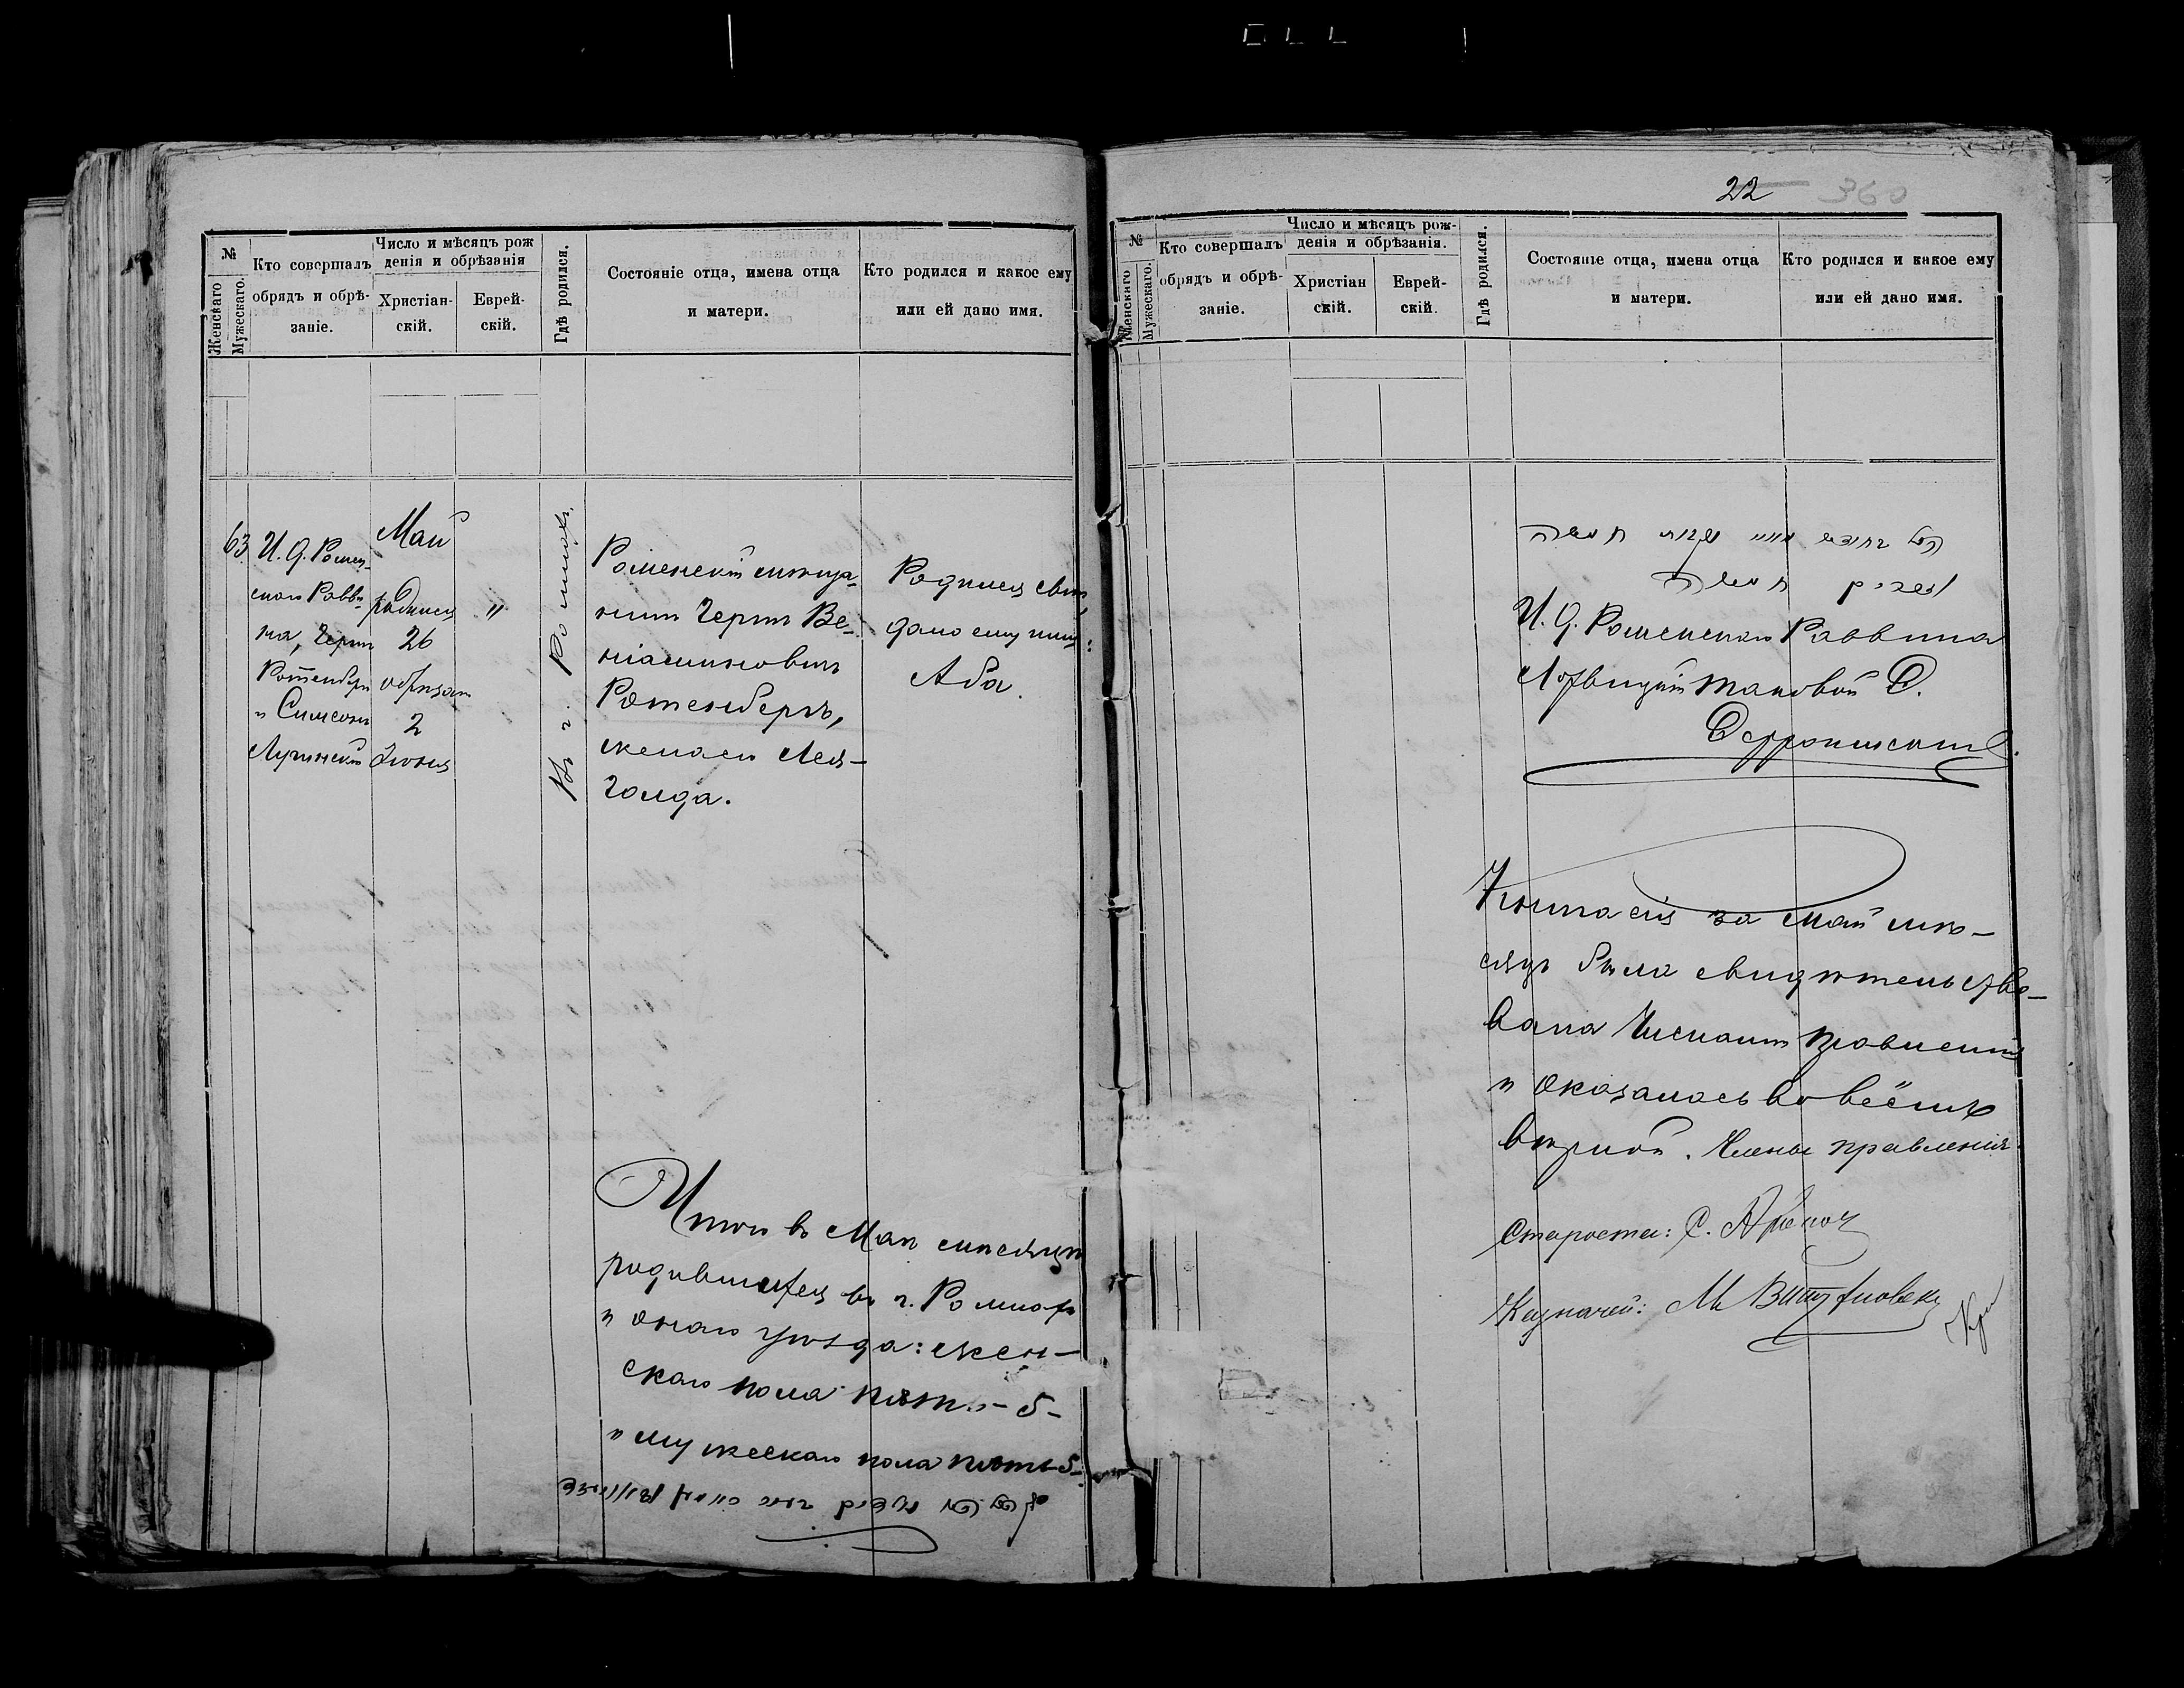 22
360
№
Женскаго
Мужескаго.
Кто совершалъ
обрядъ и обрѣ-
заніе.
Число и мѣсяцъ рож
денія и обрѣзанія
Христіан-
скій.
Еврей-
скій.
Гдѣ родился.
Состояніе отца, имена отца
и матери.
Кто родился и какое ему
или ей дано имя.
63
И. д. Ромен-
скаго Равви-
на, Герш
Ротенберг
и Симеонъ
Май
родился
26
обрезан
2
Іюня
"
Въ г. Ромнахъ.
Роменскій мѣща-
нинъ Герш Ве-
ніаминовичъ
Ротенбергъ,
жена его Лея-
Голда.
Родился сынъ,
дано ему имя:
Аба.
Итого въ Маѣ мѣсяцѣ
родившихся въ г. Ромнахъ
и онаго уѣзда: жен-
скаго пола пять-5-
и мужескаго пола пять-5-
№
Женскаго
Мужескаго.
Кто совершалъ
обрядъ и обрѣ-
заніе.
Число и мѣсяцъ рож-
денія и обрѣзанія.
Христіан
скій.
Еврей-
скій.
Гдѣ родился.
Состояніе отца, имена отца
и матери.
Кто родился и какое ему
или ей дано имя.
И. д. Роменскаго Раввина
Лохвицкій таковой
Книга сія за Май мѣ-
сяцъ была свидѣтельство-
вана Членами Правленія
и оказалась во всёмъ
вѣрной. Члены правленія
Староста: С.
Казначей: М